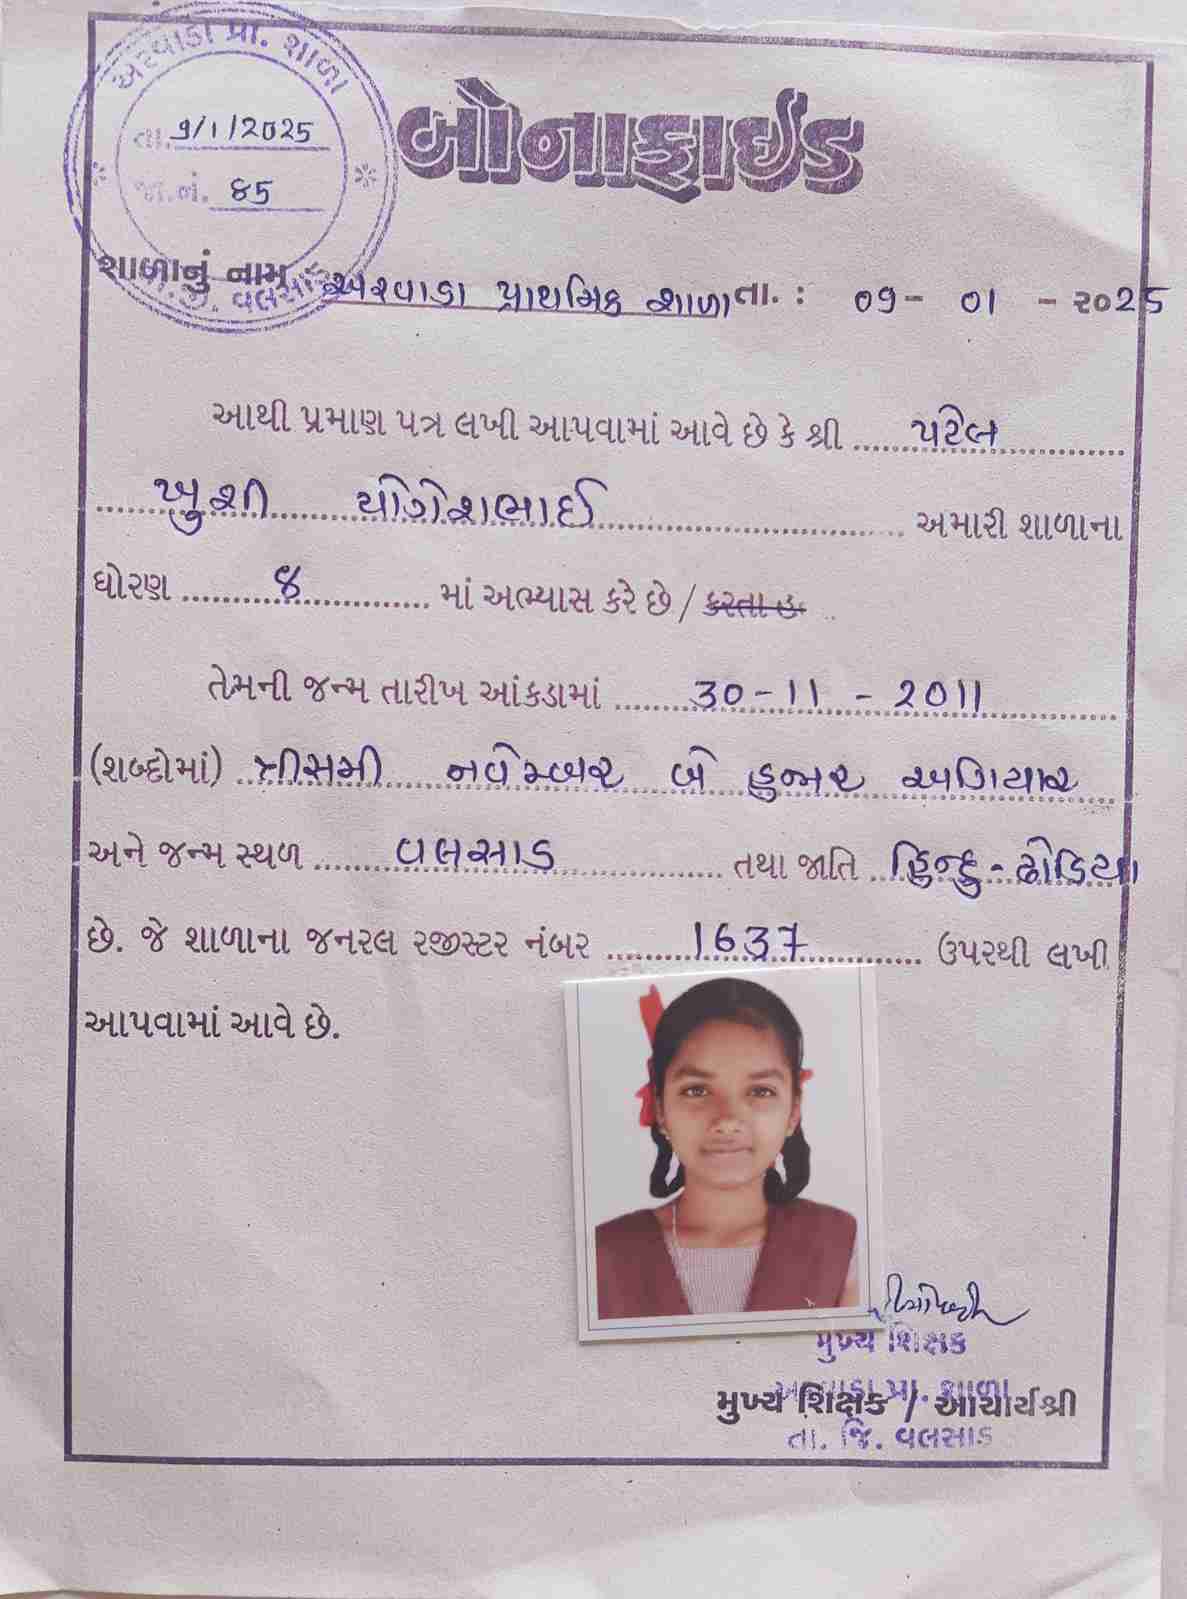 અરવાડા પ્રા. શાળા
તા. 9/1/2025
જા.નં. ૪૬
વલસાડ
બોનાફાઈડ
શાળાનું નામ અરવાડા પ્રાથમિક શાળા તા. : 09 - 01 - ૨૦25
આથી પ્રમાણ પત્ર લખી આપવામાં આવે છે કે શ્રી પટેલ
ખુશી યોગેશભાઈ અમારી શાળાના
ધોરણ ૪ માં અભ્યાસ કરે છે / કરતા હ
તેમની જન્મ તારીખ આંકડામાં 30 - 11 - 2011
(શબ્દોમાં) ત્રીસમી નવેમ્બર બે હજાર અગિયાર
અને જન્મ સ્થળ વલસાડ તથા જાતિ હિન્દુ - ઢોડિયા
છે. જે શાળાના જનરલ રજીસ્ટર નંબર 1637 ઉપરથી લખી
આપવામાં આવે છે.
મુખ્ય શિક્ષક
પ્રા. શાળા
મુખ્ય શિક્ષક / આચાર્યશ્રી
તા. જિ. વલસાડ